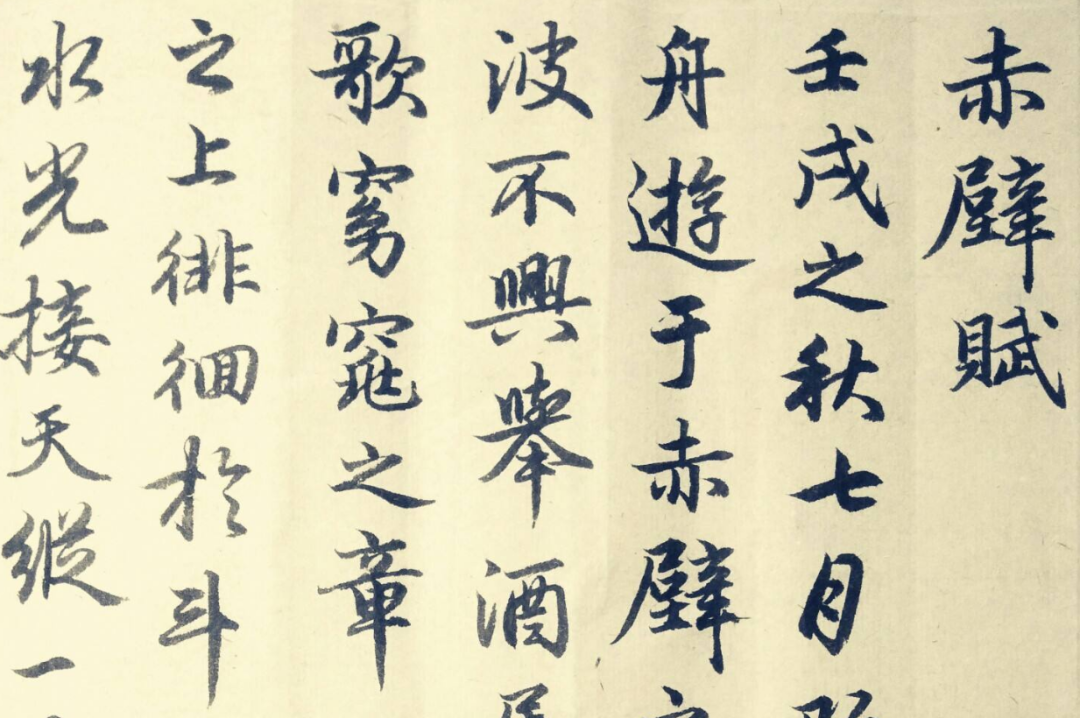 赤壁賦
壬戌之秋七月
舟遊于赤壁
波不興舉酒
歌窈窕之章
之上徘徊於斗
水光接天縱一